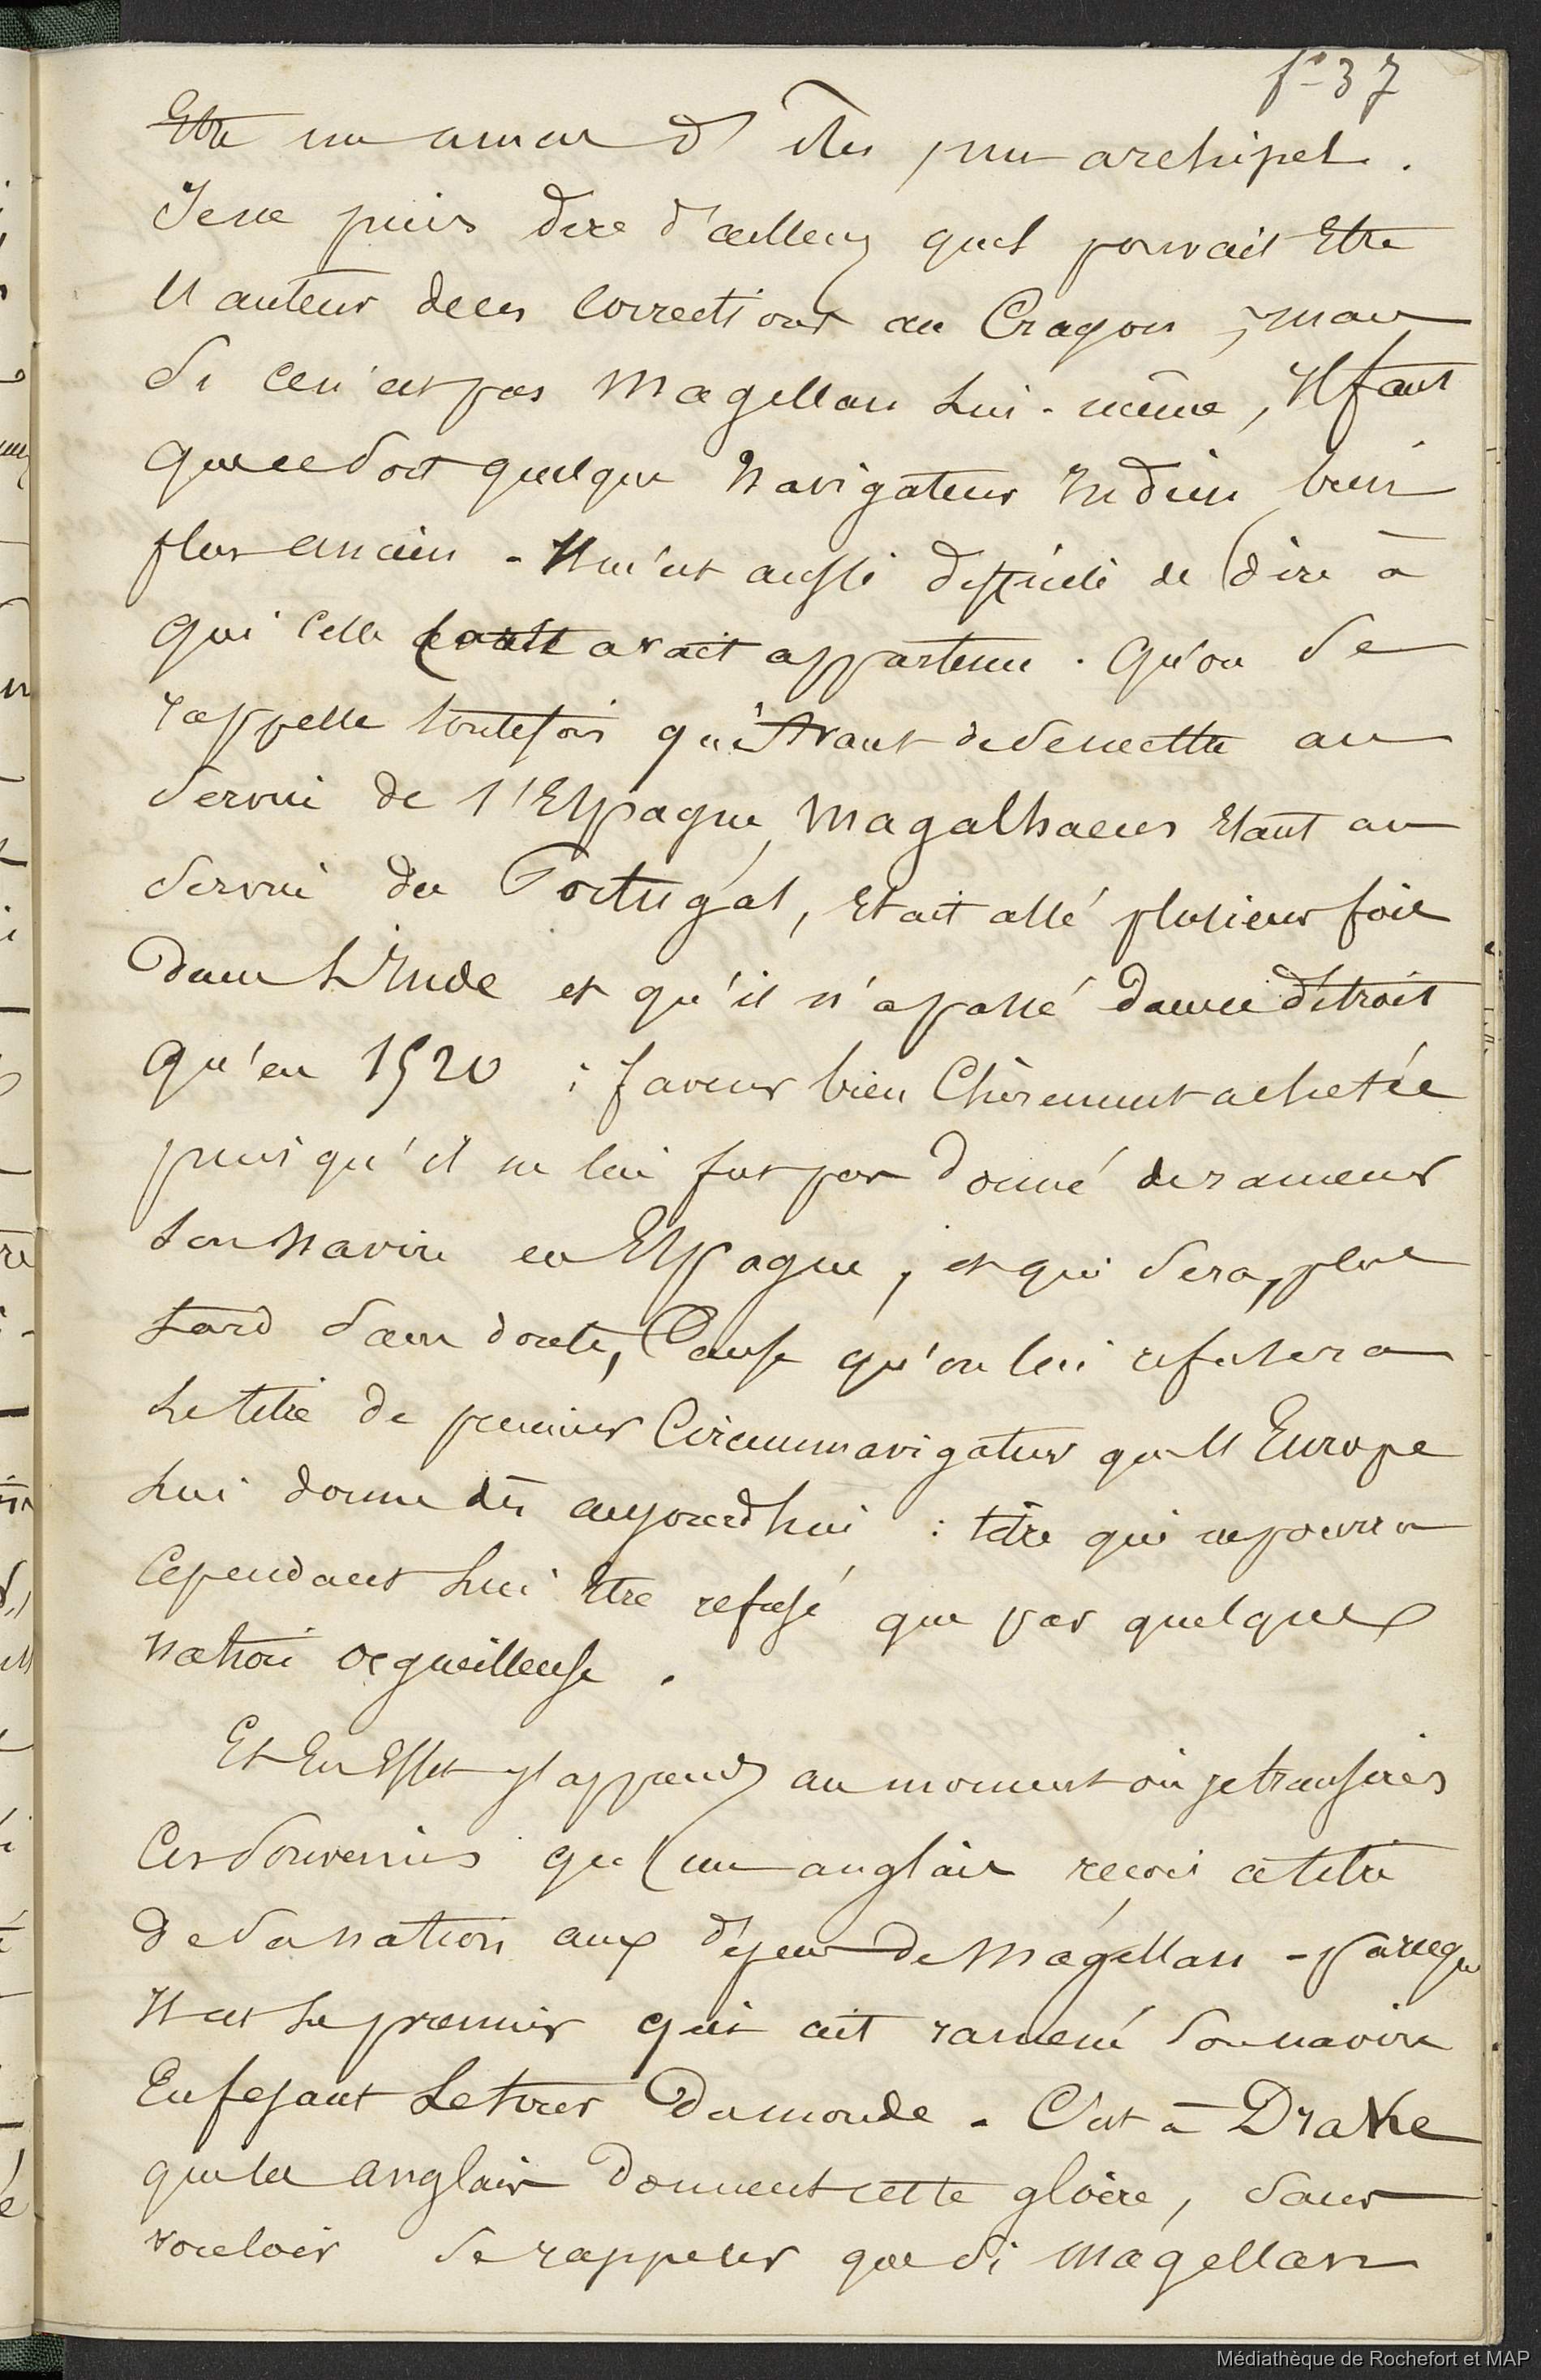 fo 37
Etre un amas d'iles, un archipel.
Je ne puis dire d'ailleurs quel pouvait Etre
l'auteur de ces Corrections au Crayon, mais
si ce n'est pas Magellan Lui-même, Il faut
que ce soit quelque Navigateur Indien bien
plus ancien - Il m'est aussi difficile de dire à
qui cette Carte avait appartenu. Qu'on se
rappelle toutefois qu'Avant de se mettre au
service de l'Espagne, Magalhaens Etant au
service du Portugal, Etait allé plusieurs fois
dans L'Inde et qu'il n'a passé dans ce détroit
qu'en 1520 : faveur bien Chèrement achetée
puisqu'il ne lui fut pas donné de ramener
son Navire en Espagne, et qui sera, plus
tard sans doute, Cause qu'on lui refusera
Le titre de premier Circumnavigateur que l'Europe
Lui donne dès aujourd'hui : titre qui ne pourra
Cependant Lui Etre refusé que par quelque
Nation orgueilleuse.
Et En Effet j'apprends au moment où je transcris
Ces Souvenirs qu'un anglais reçoit ce titre
de sa nation aux dépens de Magellan - parceque
Il est Le premier qui ait ramené son navire
En fesant Le tour du monde - C'est à Drake
que les anglais donnent cette gloire, sans
vouloir se rappeler que si Magellan
Médiathèque de Rochefort et MAP